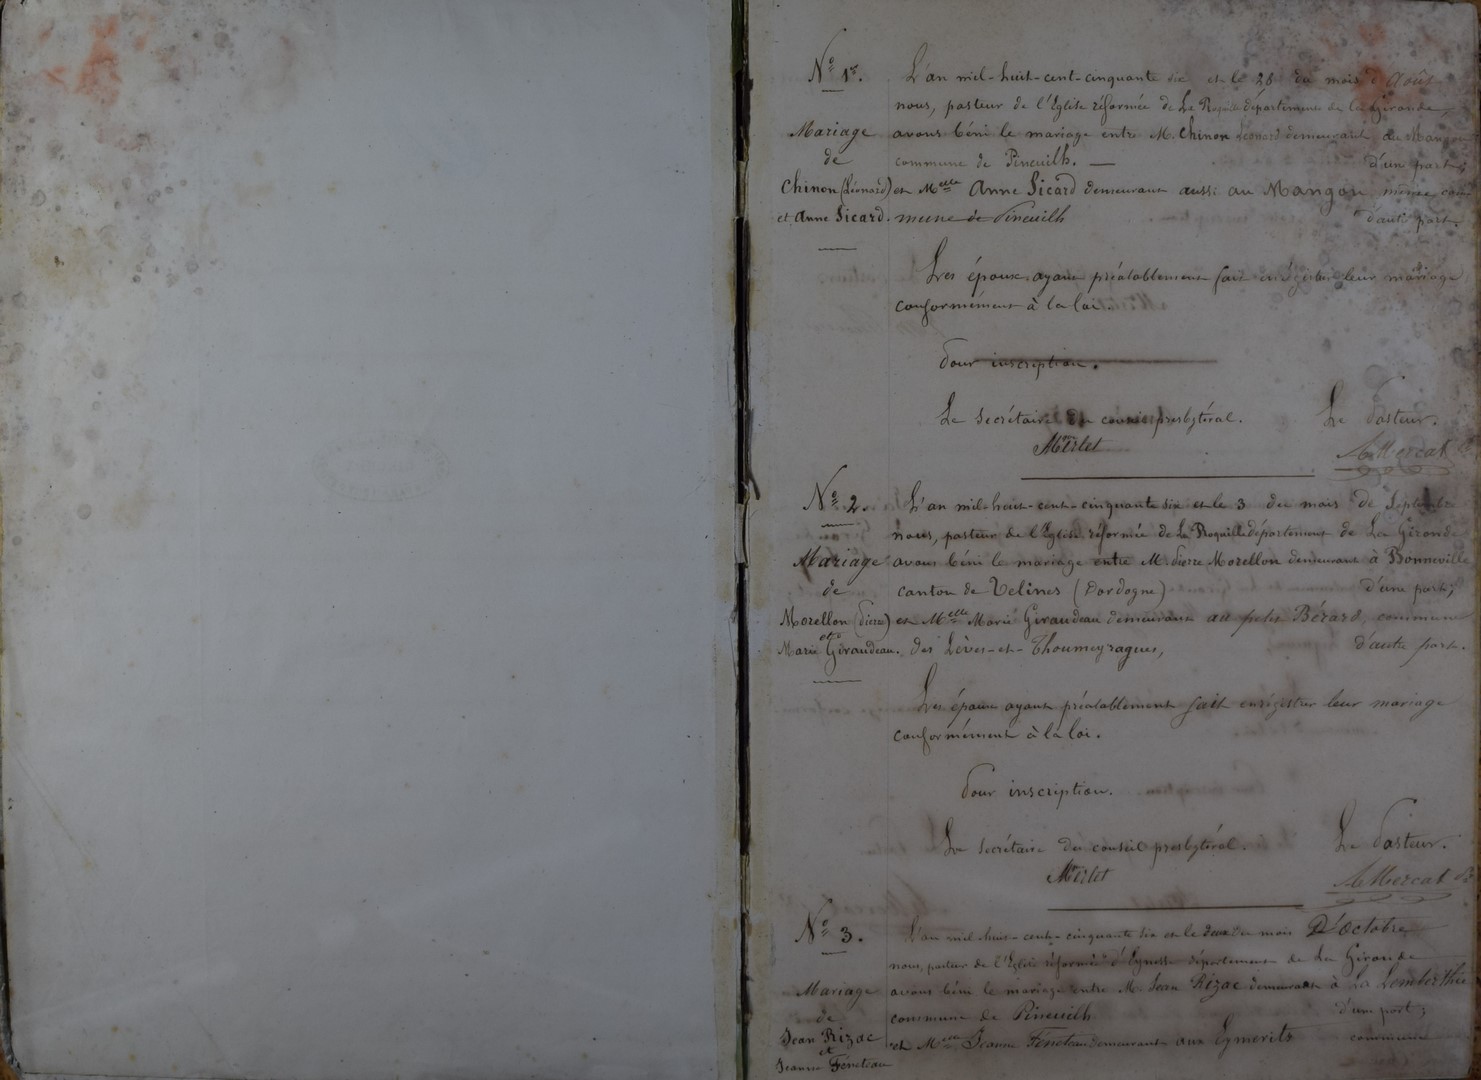 N° 1er.
Mariage
de
Chinon (Léonard)
et Anne Sicard.
L'an mil-huit-cent-cinquante six et le 28 du mois d'Août
nous, pasteur de l'Eglise réformée de La Roquille département de la Gironde,
avons béni le mariage entre M. Chinon Léonard demeurant au Mangon
commune de Pineuilh. — d'un part;
et Melle Anne Sicard demeurant aussi au Mangon, même com
mune de Pineuilh d'autre part.
Les époux ayant préalablement fait enrégistrer leur mariage
conformément à la loi.
Pour inscription.
Le Secrétaire du conseil presbytéral. Le Pasteur.
Merlet
N° 2.
Mariage
de
Morellon (Pierre)
et
Marie Giraudeau.
L'an mil-huit-cent-cinquante six et le 3 du mois de Septembre
nous, pasteur de l'Eglise réformée de La Roquille département de La Gironde
avons béni le mariage entre M. Pierre Morellon demeurant à Bonneville
canton de Velines (Dordogne) d'une part;
et Melle Marie Giraudeau demeurant au petit Bérard, commune
des Lèves-et-Thoumeyragues, d'autre part.
Les époux ayant préalablement fait enrégistrer leur mariage
conformément à la loi.
Pour inscription.
Le Secrétaire du conseil presbytéral. Le Pasteur.
Merlet
N° 3.
Mariage
de
Jean Rizac
et
Jeanne Féneteau
L'an mil-huit-cent-cinquante six et le deux du mois D'Octobre
nous, pasteur de l'Eglise réformée d'Eynesse département de La Gironde
avons béni le mariage entre M. Jean Rizac demeurant à La Lemberthie
commune de Pineuilh d'une part;
et Melle Jeanne Féneteau demeurant aux Eymerits commune